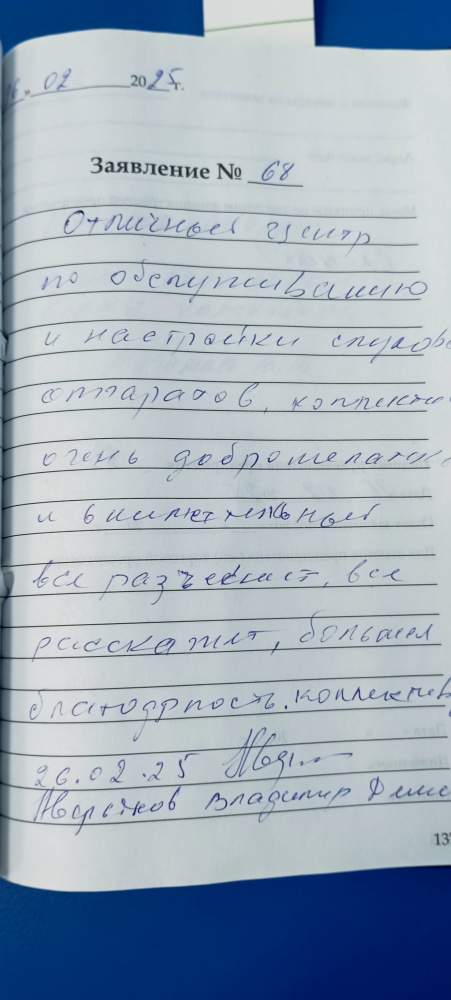 26 » 02 2025 г.
Заявление № 68
Отличный центр
по обслуживанию
и настройки слухов
аппаратов, коллекти
очень доброжелател
и внимательный
все разъяснят, все
расскажут, большая
благодарность коллективу
26.02.25
Владимир
137